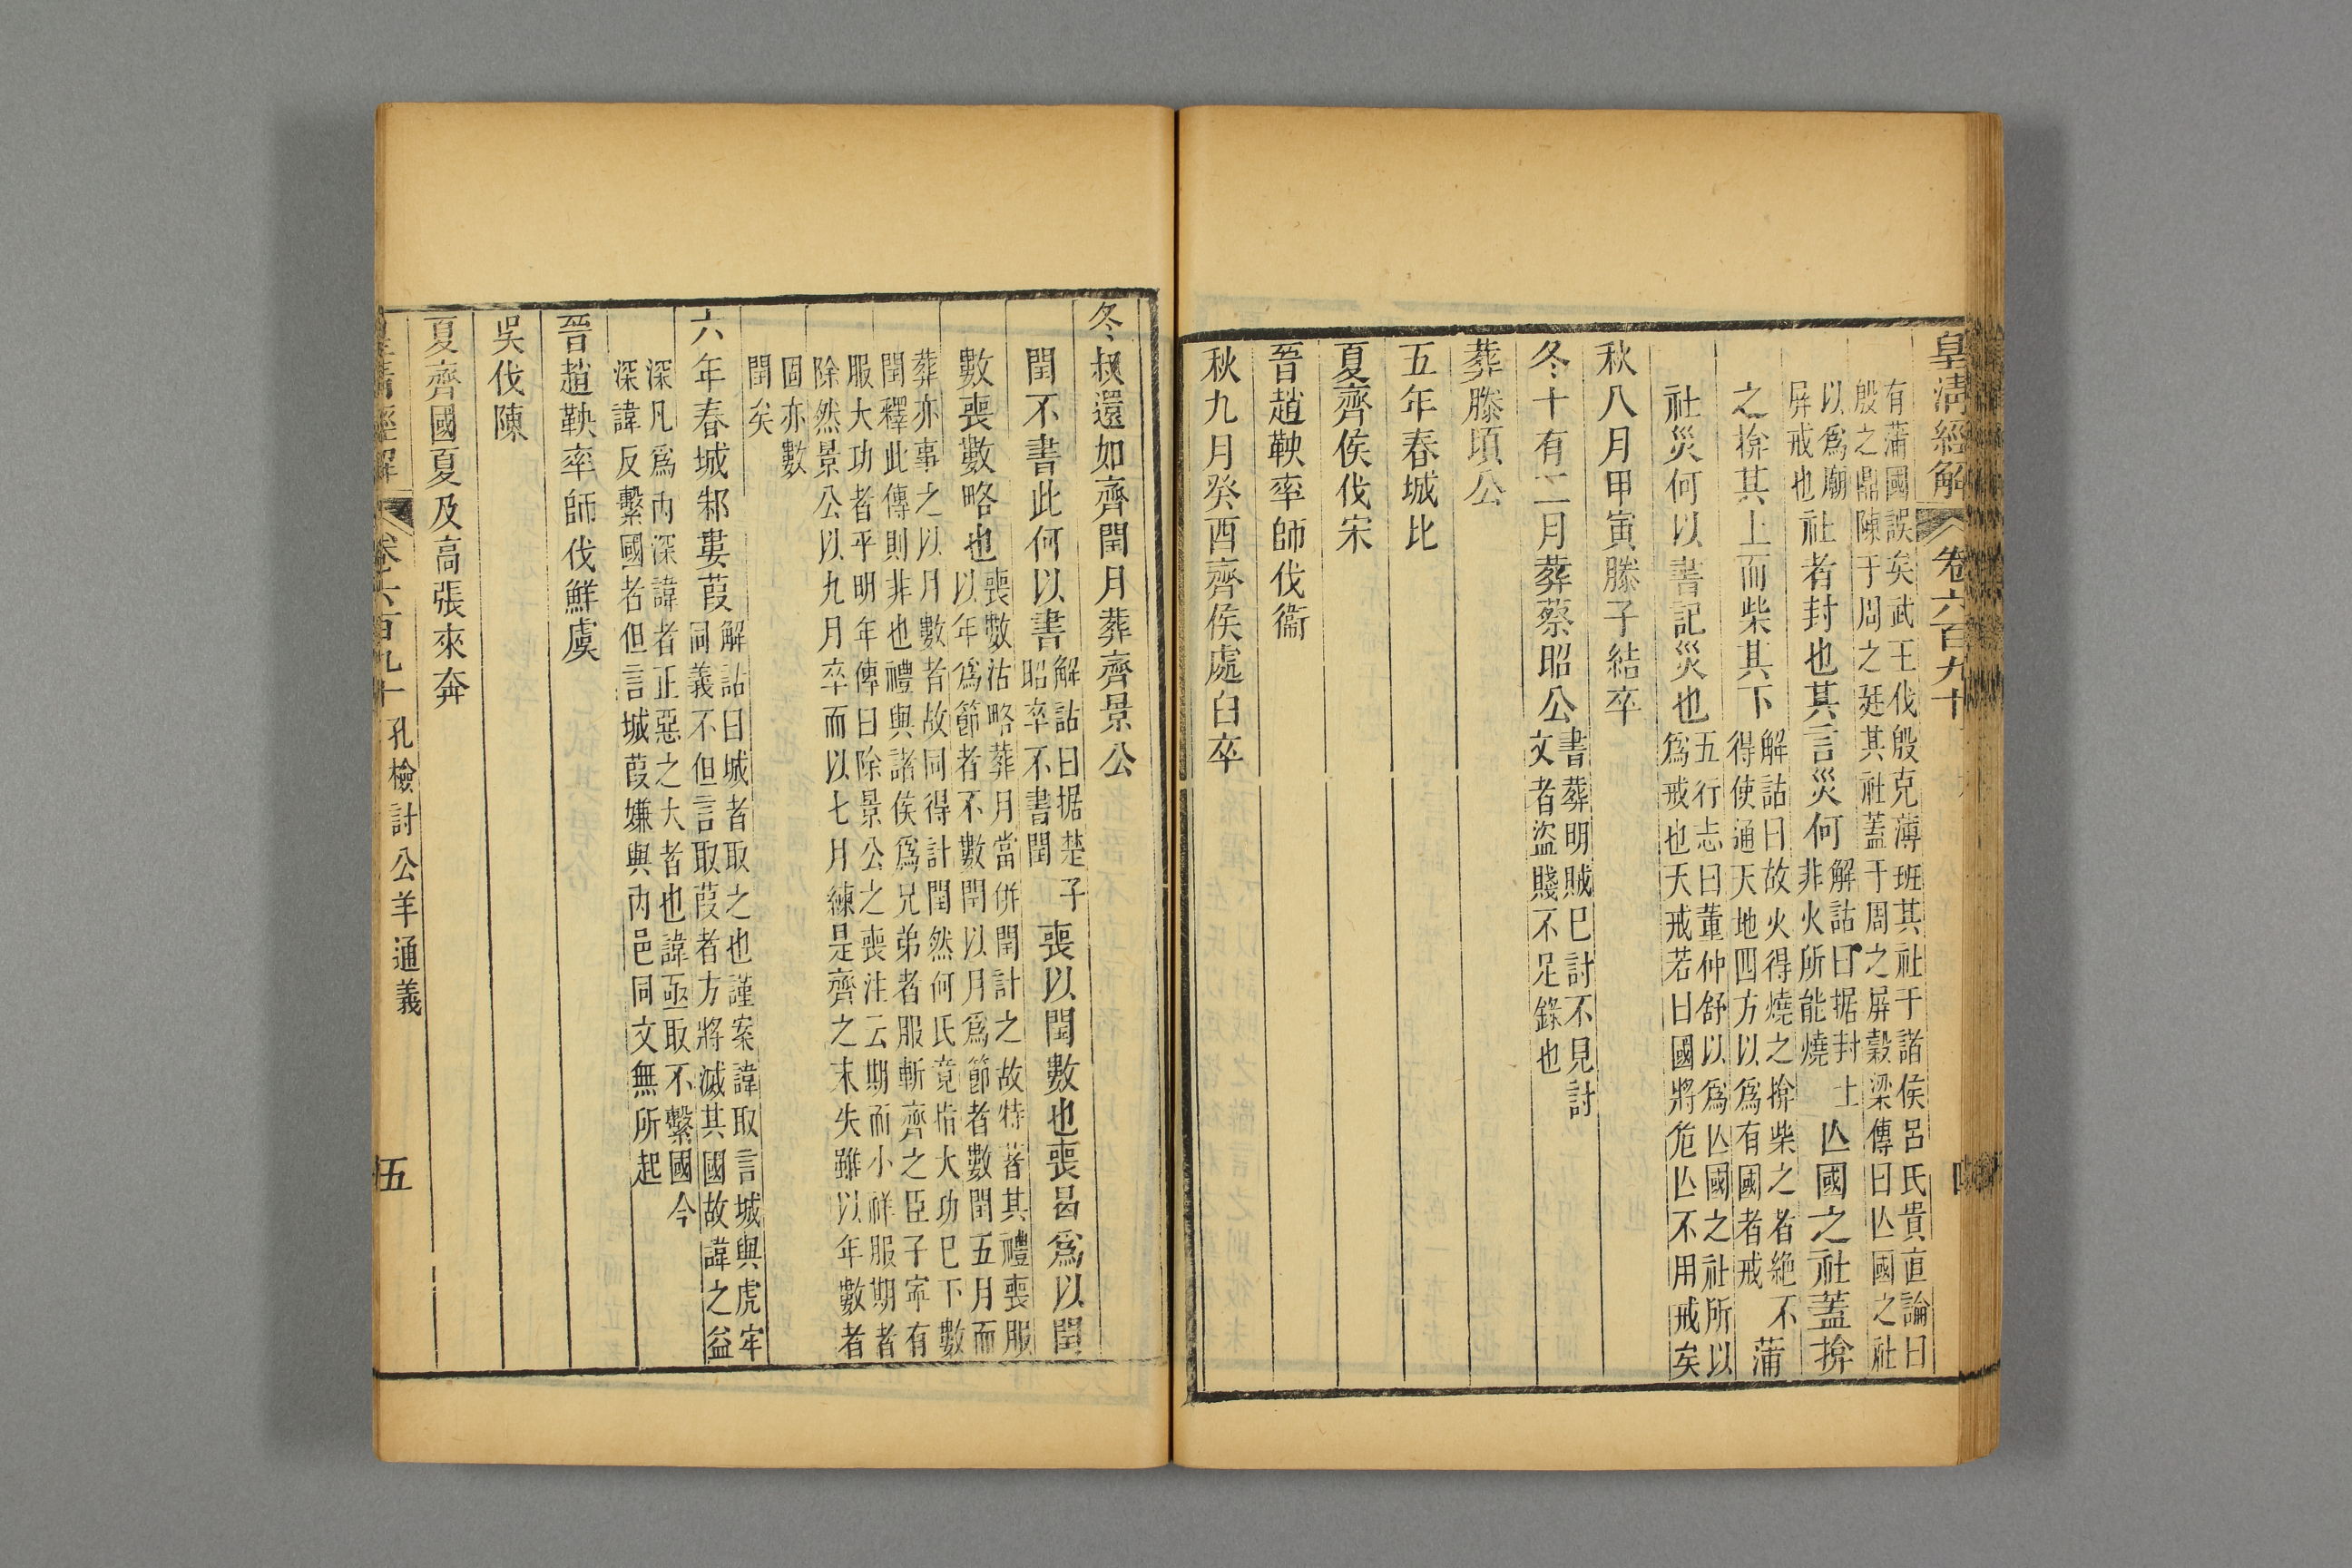 皇清經解 卷六百九十
有蒲國誤矣武王伐殷克薄班其社于諸侯呂氏貴直論曰
殷之鼎陳于周之廷其社蓋于周之屏穀梁傳曰亾國之社
以爲廟
屏戒也
社者封也其言災何
解詁曰据封土
非火所能燒
亾國之社蓋揜
之揜其上而柴其下
解詁曰故火得燒之揜柴之者絶不
得使通天地四方以爲有國者戒
蒲
社災何以書記災也
五行志曰董仲舒以爲亾國之社所以
爲戒也天戒若曰國將危亾不用戒矣
秋八月甲寅滕子結卒
冬十有二月葬蔡昭公
書葬明賊巳討不見討
文者盜賤不足錄也
葬滕頃公
五年春城比
夏齊侯伐宋
晉趙鞅率師伐衞
秋九月癸酉齊侯處臼卒
冬叔還如齊閏月葬齊景公
閏不書此何以書
解詁曰据楚子
昭卒不書閏
喪以閏數也喪曷爲以閏
數喪數略也
喪數沽略葬月當併閏計之故特著其禮喪服
以年爲節者不數閏以月爲節者數閏五月而
葬亦事之以月數者故同得計閏然何氏竟指大功巳下數
閏釋此傳則非也禮與諸侯爲兄弟者服斬齊之臣子寧有
服大功者平明年傳曰除景公之喪注云期而小祥服期者
除然景公以九月卒而以七月練是齊之末失雖以年數者
固亦數
閏矣
六年春城邾婁葭
解詁曰城者取之也謹案諱取言城與虎牢
同義不但言取葭者方將滅其國故諱之益
深凡爲內深諱者正惡之大者也諱亟取不繫國今
深諱反繫國者但言城葭嫌與內邑同文無所起
晉趙鞅率師伐鮮虞
吳伐陳
夏齊國夏及高張來奔
皇清經解 卷六百九十 孔檢討公羊通義 五